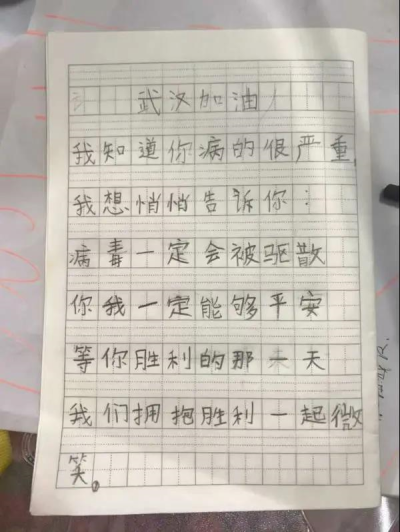 武汉加油!
我知道你病的很严重,
我想悄悄告诉你:
病毒一定会被驱散
你我一定能够平安
等你胜利的那一天
我们拥抱胜利一起微
笑。